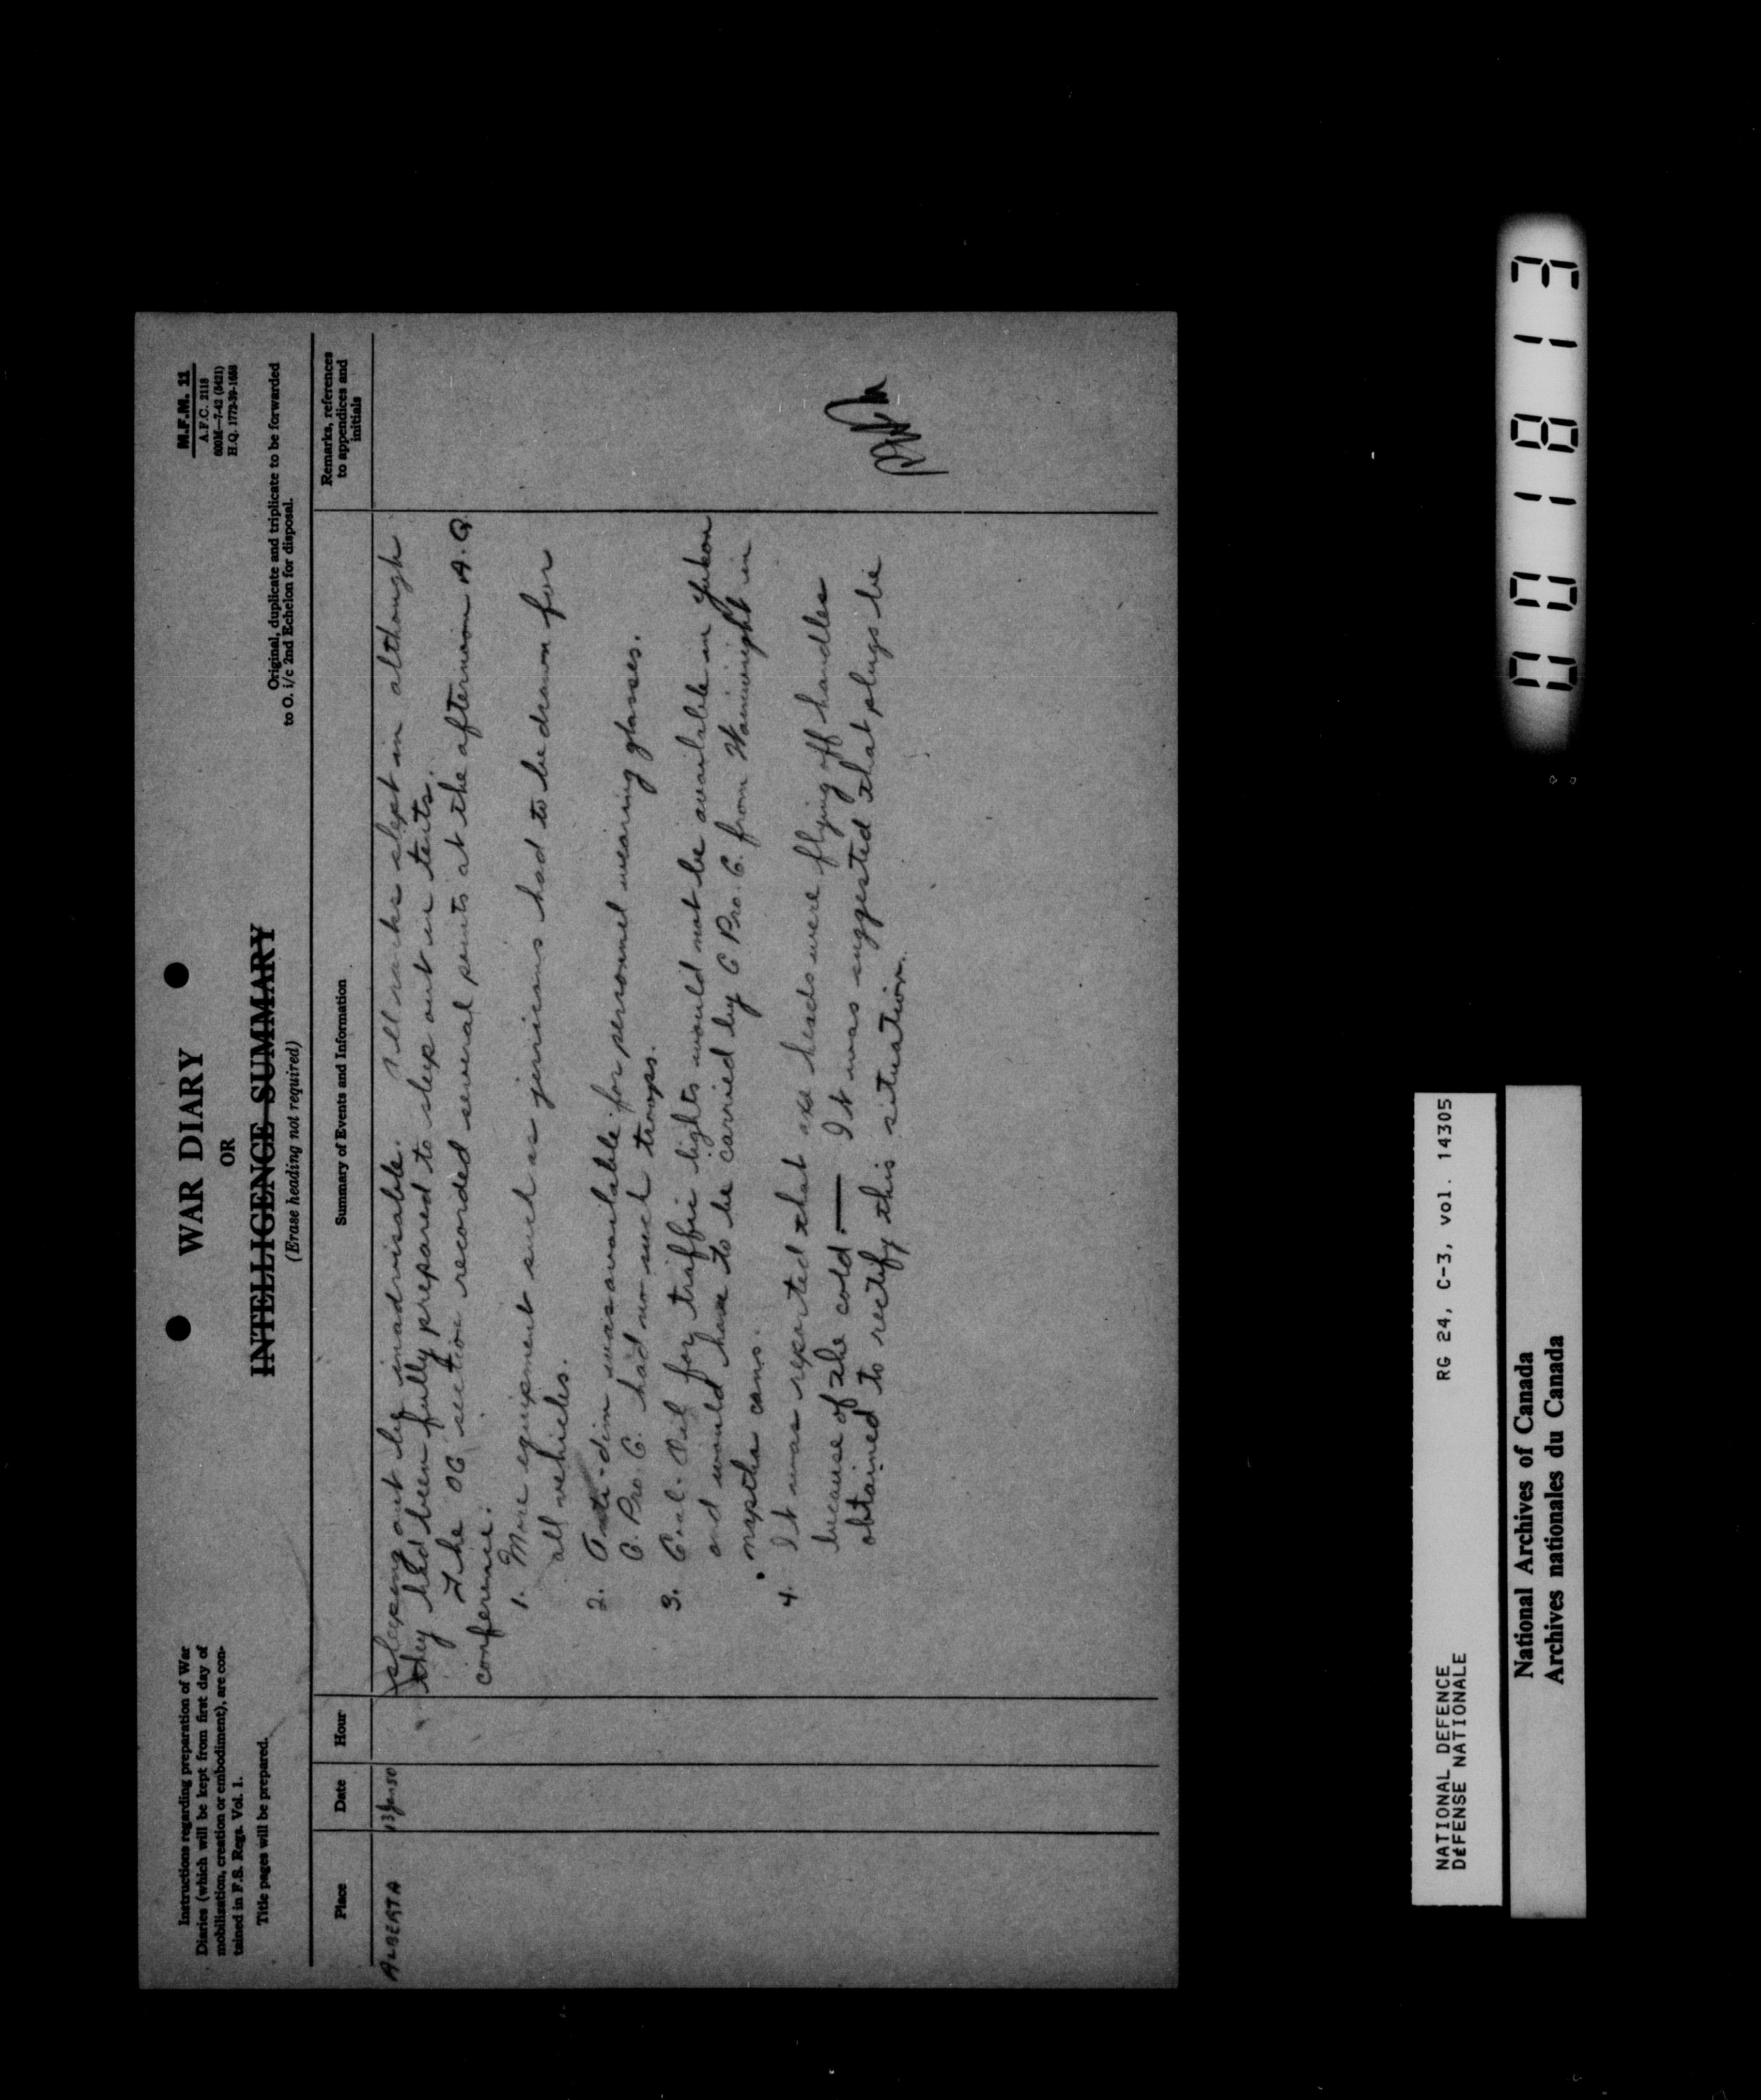 Instructions regarding preparation of War
Diaries (which will be kept from first day of
mobilisation, creation or embodiment), are con-
tained in F.S. Regs. Vol. 1.
Title pages will be prepared.
WAR DIARY
OR
INTELLIGENCE SUMMARY
(Erase heading not required)
M.F.M. 11
A.F.C. 2118
600M—7-42 (3421)
H.Q. 1772-39-1658
Original, duplicate and triplicate to be forwarded
to O. i/c 2nd Echelon for disposal.
Place
Date
Hour
Summary of Events and Information
Remarks, references
to appendices and
initials
ALBERTA
13 Jan 50
sleeping out be inadvisable. All ranks slept in although
they had been fully prepared to sleep out in tents.
The OC section recorded several points at the afternoon A.Q.
conference:
1. More equipment such as jerricans had to be drawn for
all vehicles.
2. Anti-dim was available for personnel wearing glasses.
C. Pro. C. had no such troops.
3. Coal-Oil for traffic lights would not be available in Yukon
and would have to be carried by C Pro. C. from Wainwright in
naptha cans.
4. It was reported that axe heads were flying off handles
because of the cold. — It was suggested that plugs be
obtained to rectify this situation.
001813
NATIONAL DEFENCE
DÉFENSE NATIONALE
RG 24, C-3, vol. 14305
National Archives of Canada
Archives nationales du Canada